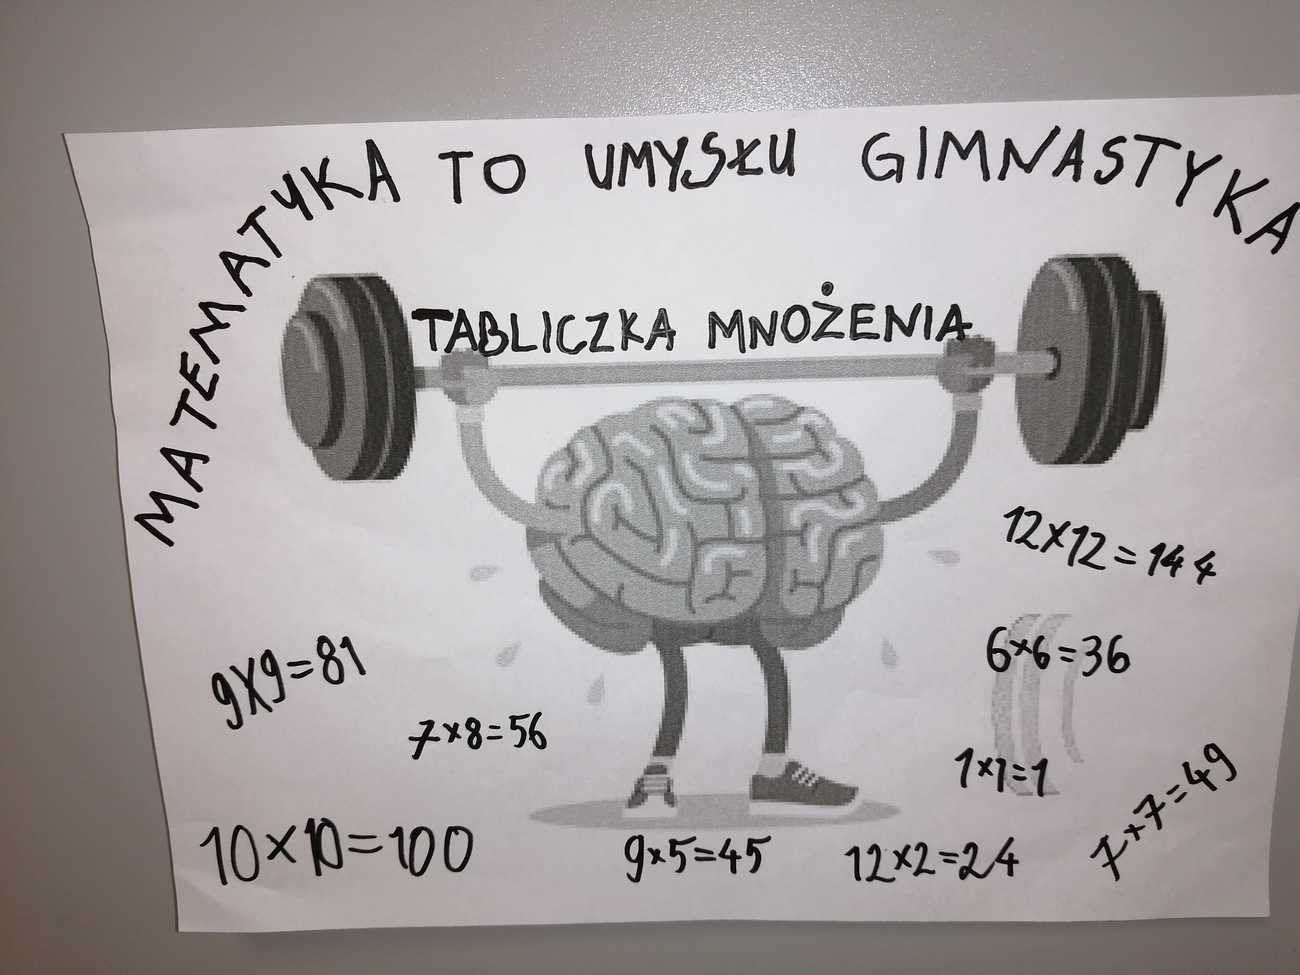 MATEMATYKA TO UMYSŁU GIMNASTYKA
TABLICZKA MNOŻENIA
12×12=144
6×6=36
9×9=81
7×8=56
1×1=1
7×7=49
10×10=100
9×5=45
12×2=24